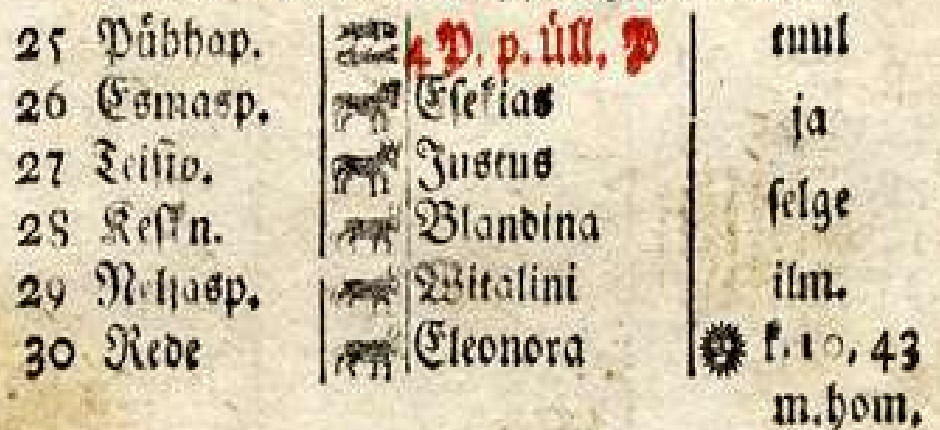 25 Pühhap. 4 P. p. üll. P tuul
26 Esmasp. Esekias ja
27 Teisip. Justus
28 Keskn. Blandina selge
29 Neljasp. Witalini ilm.
30 Rede Eleonora k. 10, 43
m. hom.